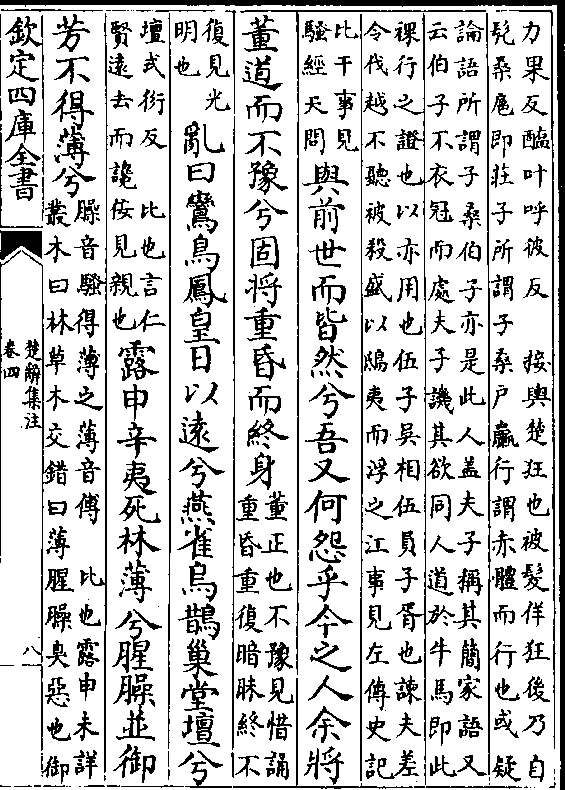 力果反醢叶呼彼反　接輿楚狂也被髮佯狂後乃自
髡桑扈即莊子所謂子桑戶臝行謂赤體而行也或疑
論語所謂子桑伯子亦是此人盖夫子稱其簡家語又
云伯子不衣冠而處夫子譏其欲同人道於牛馬即此
裸行之證也以亦用也伍子吳相伍員子胥也諫夫差
令伐越不聽被殺盛以鴟夷而浮之江事見左傳史記
比干事見
騷經天問
與前世而皆然兮吾又何怨乎今之人余將
董道而不豫兮固將重昏而終身
董正也不豫見惜誦
重昏重復暗昧終不
復見光
明也
亂曰鸞鳥鳳皇日以逺兮燕雀烏鵲巢堂壇兮
壇式衍反　比也言仁
賢逺去而讒佞見親也
露申辛夷死林薄兮腥臊並御
芳不得薄兮
臊音騷得薄之薄音傅　比也露申未詳
叢木曰林草木交錯曰薄腥臊臭惡也御
欽定四庫全書
楚辭集注
卷四
八